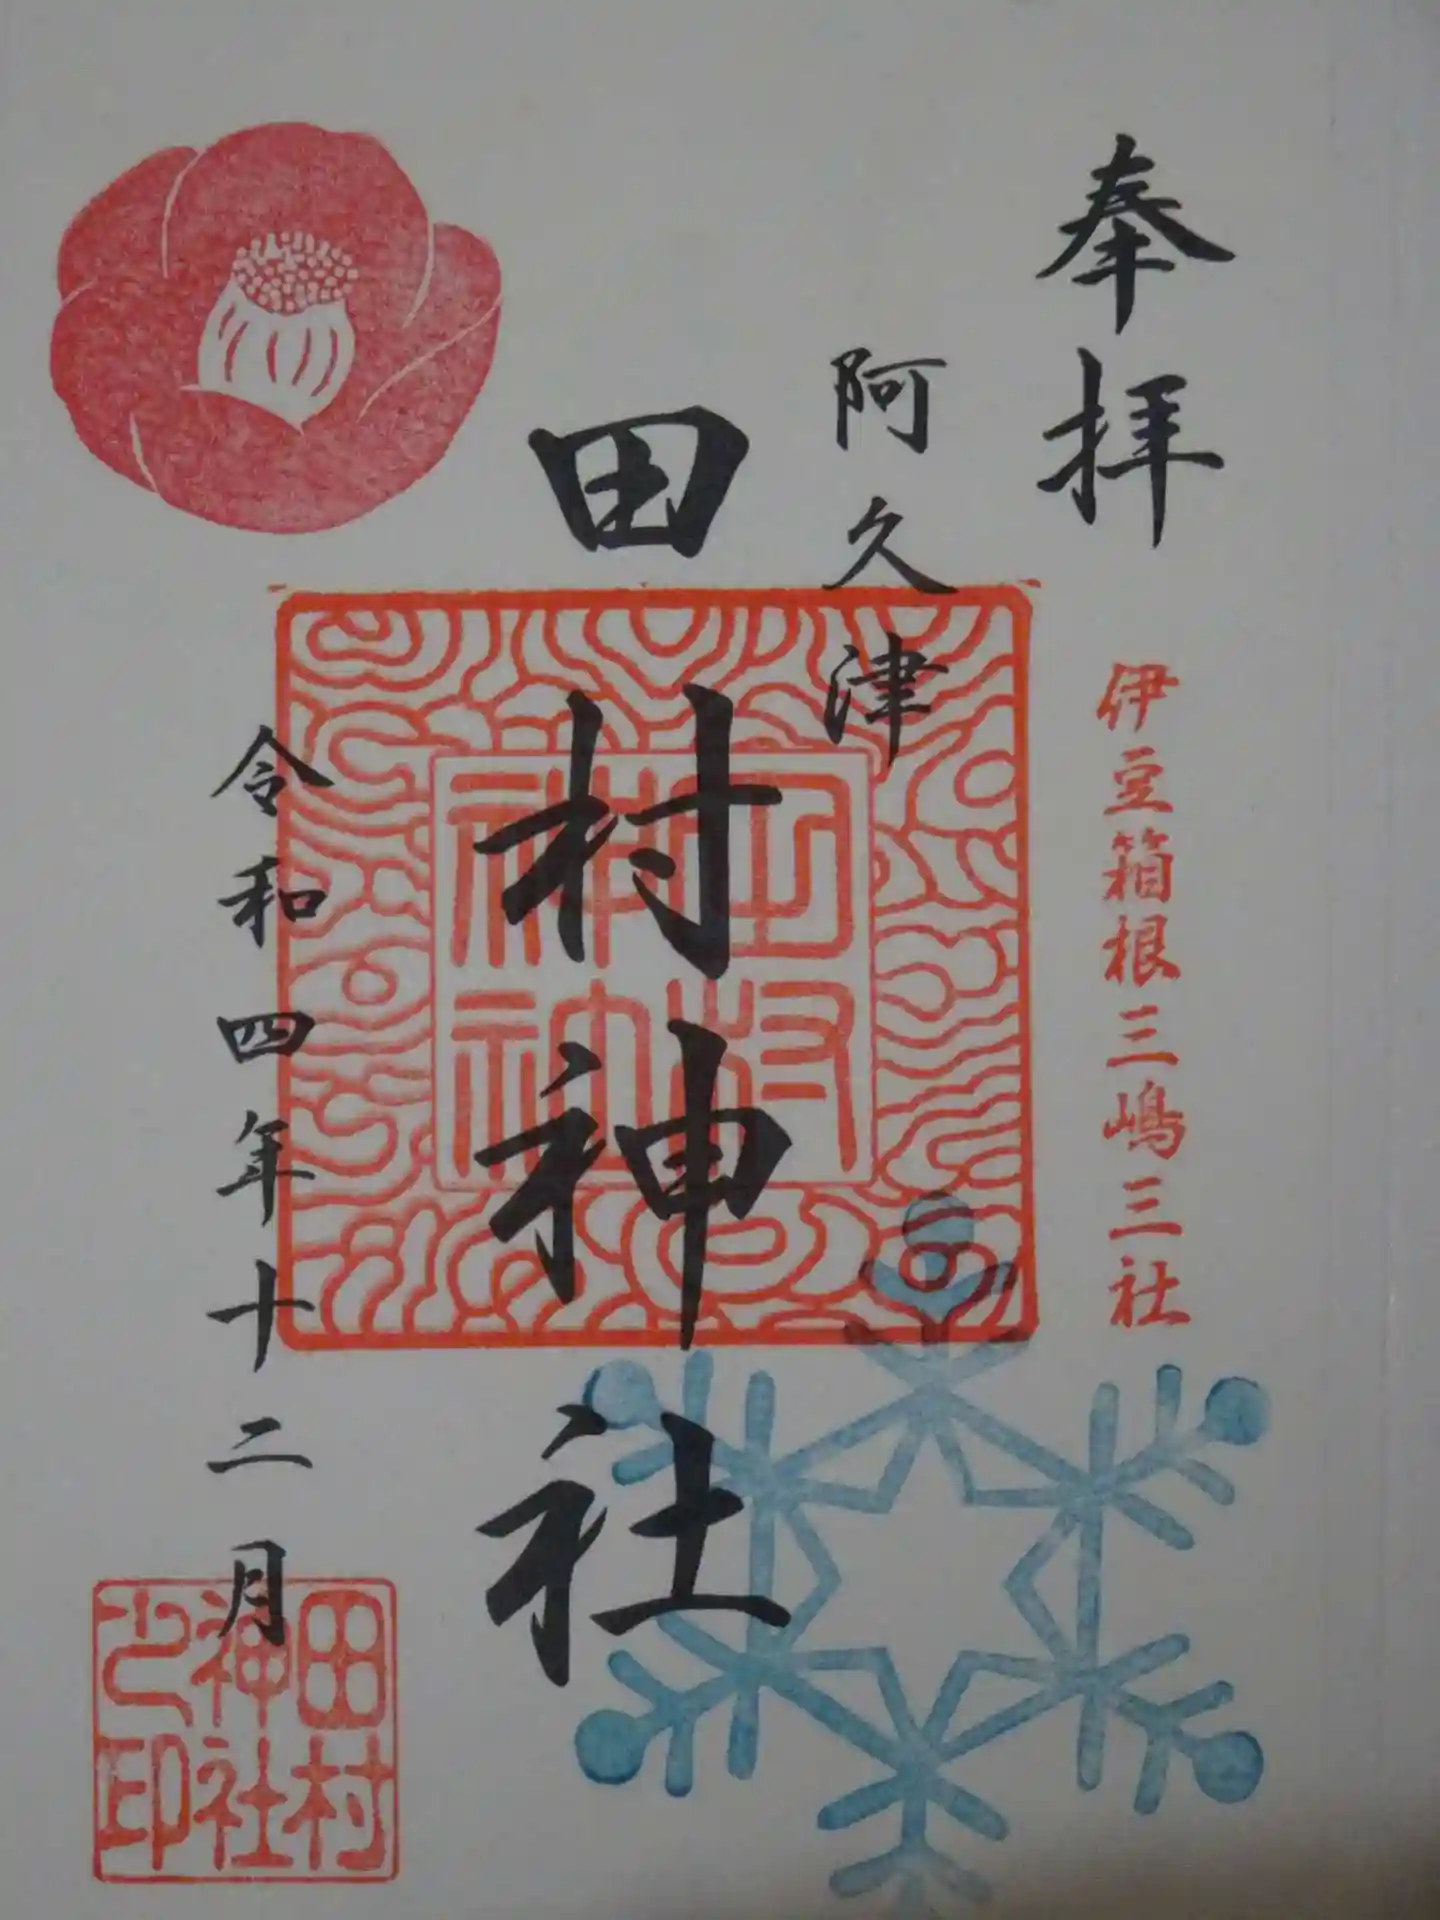 奉拝
伊豆箱根三嶋三社
阿久津
田村神社
田村
神社
令和四年十二月
田村
神社
之印